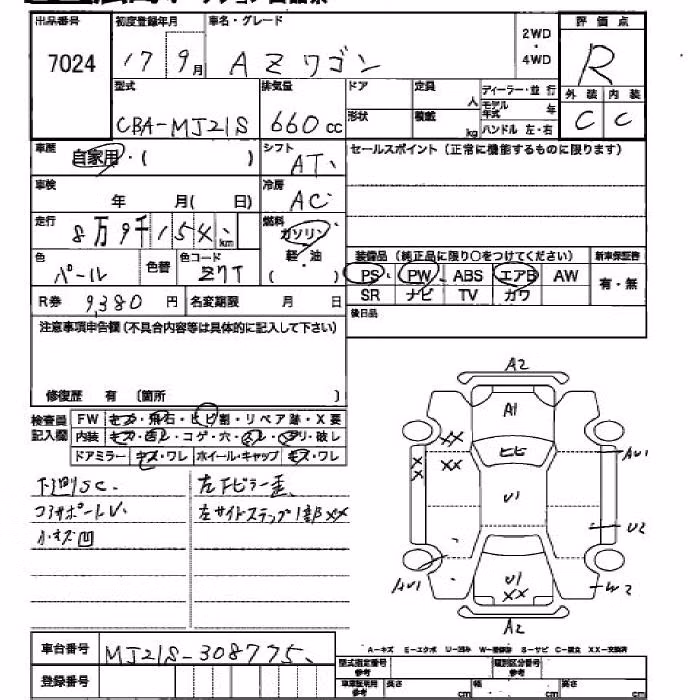 出品番号 初度登録年月 車名・グレード 2WD・4WD 評価点
7024 17 9月 AZワゴン R
型式 排気量 ドア 定員 人 ディーラー・並行 外装 内装
CBA-MJ21S 660cc 形状 積載 kg モデル年式 年 C C
ハンドル 左・右
車歴 自家用・( ) シフト AT セールスポイント(正常に機能するものに限ります)
車検 年 月( 日) 冷房 AC
走行 8万9千154 km 燃料 ガソリン
色 パール 色替 色コード Z7T 軽・油 ( )
装備品(純正品に限り○をつけてください) 新車保証書
PS PW ABS エアB AW 有・無
SR ナビ TV カワ
R券 9,380 円 名変期限 月 日 後日品
注意事項申告欄(不具合内容等は具体的に記入して下さい)
修復歴 有 (箇所 )
検査員記入欄 FW キズ・飛石・ヒビ割・リペア跡・X要
内装 キズ・汚レ・コゲ・穴・スレ・ヘリ・破レ
ドアミラー キズ・ワレ ホイール・キャップ キズ・ワレ
下廻りSC. 左下ピラー歪
コアサポートU. 左サイドステップ1部XX
小キズ凹
A2
A1
XX ヒビ AU1
XX XX
U1
U2
AU1 U1 XX W2
A2
A-キズ E-エクボ U-凹み W-補修跡 S-サビ C-腐食 XX-交換済
車台番号 MJ21S-308775
型式指定番号 参考 類別区分番号 参考
登録番号 車庫証明用 参考 長さ cm 幅 cm 高さ cm